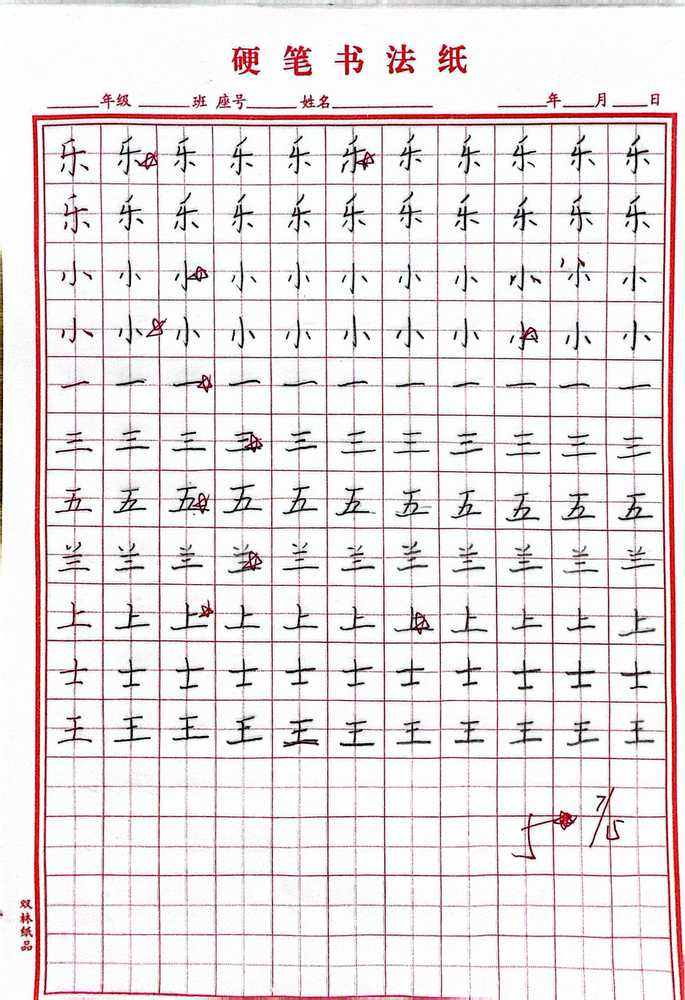 硬笔书法纸
年级 班 座号 姓名 年 月 日
乐 乐 乐 乐 乐 乐 乐 乐 乐 乐 乐
乐 乐 乐 乐 乐 乐 乐 乐 乐 乐 乐
小 小 小 小 小 小 小 小 小 小 小
小 小 小 小 小 小 小 小 小 小 小
一 一 一 一 一 一 一 一 一 一 一
三 三 三 三 三 三 三 三 三 三 三
五 五 五 五 五 五 五 五 五 五 五
兰 兰 兰 兰 兰 兰 兰 兰 兰 兰 兰
上 上 上 上 上 上 上 上 上 上 上
士 士 士 士 士 士 士 士 士 士 士
王 王 王 王 王 王 王 王 王 王 王
7/15
双林纸品